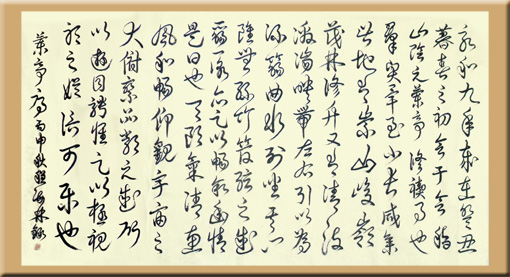 永和九年歲在癸丑
暮春之初會于會稽
山陰之蘭亭脩禊事也
群賢畢至少長咸集
此地有崇山峻嶺
茂林修竹又有清流
激湍映帶左右引以為
流觴曲水列坐其次
雖無絲竹管弦之盛
一觴一詠亦足以暢敘幽情
是日也天朗氣清惠
風和暢仰觀宇宙之
大俯察品類之盛所
以遊目騁懷足以極視
聽之娛信可樂也
蘭亭序丙申秋